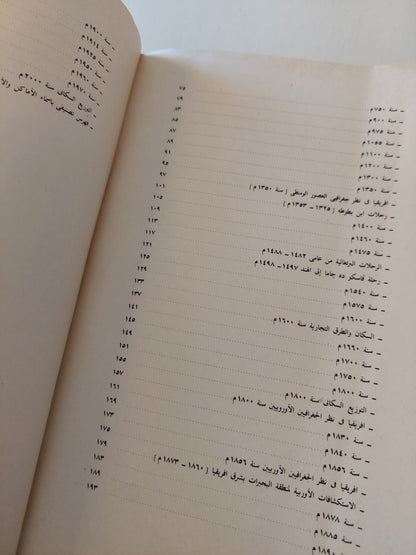 - سنة ٧٥٠م ٧٥
- سنة ٩٠٠م ٧٩
- سنة ٩٧٥م ٨٣
- سنة ١٠٥٥م ٨٥
- سنة ١١٠٠م ٨٧
- سنة ١٢٠٠م ٨٩
- سنة ١٣٠٠م ٩١
- سنة ١٣٥٠م ٩٥
- افريقيا فى نظر جغرافيى العصور الوسطى [ سنة ١٣٥٠م ] ٩٧
- رحلات ابن بطوطه [ ١٣٢٥ - ١٣٥٣م ] ١٠١
- سنة ١٤٠٠م ١٠٥
- سنة ١٤٦٠م ١٠٩
- سنة ١٤٧٥م ١١٣
- الرحلات البرتغالية من عامى ١٤٨٢ - ١٤٨٨م ١١٧
- رحلة فاسكو ده جاما إلى الهند ١٤٩٧ - ١٤٩٨م ١٢١
- سنة ١٥٤٠م ١٢٥
- سنة ١٥٧٥م ١٢٩
- سنة ١٦٠٠م ١٣٣
- السكان والطرق التجارية سنة ١٦٠٠م ١٣٧
- سنة ١٦٦٠م ١٤١
- سنة ١٧٠٠م ١٤٥
- سنة ١٧٥٠م ١٤٩
- سنة ١٨٠٠م ١٥١
- التوزيع السكانى سنة ١٨٠٠م ١٥٥
- افريقيا فى نظر الجغرافيين الأوروبيين سنة ١٨٠٠م ١٥٧
- سنة ١٨٣٠م ١٦١
- سنة ١٨٤٠م ١٦٩
- سنة ١٨٥٦م ١٧٣
- افريقيا فى نظر الجغرافيين الأوروبيين سنة ١٨٥٦م ١٧٥
- الاستكشافات الأوربية لمنطقة البحيرات بشرق افريقيا [ ١٨٦٠ - ١٨٧٣م ] ١٧٩
- سنة ١٨٧٨م ١٨٣
- سنة ١٨٨٥م ١٨٩
- سنة ١٨٩٠م ١٩٣
- سنة ١٩٠٠م
- سنة ١٩١٤م
- سنة ١٩٢٥م
- سنة ١٩٥٠م
- سنة ١٩٦٠م
- سنة ١٩٧٠م
- التوزيع السكانى سنة ٢٠٠٠م
- فهرس تصنيفى باسماء الأماكن